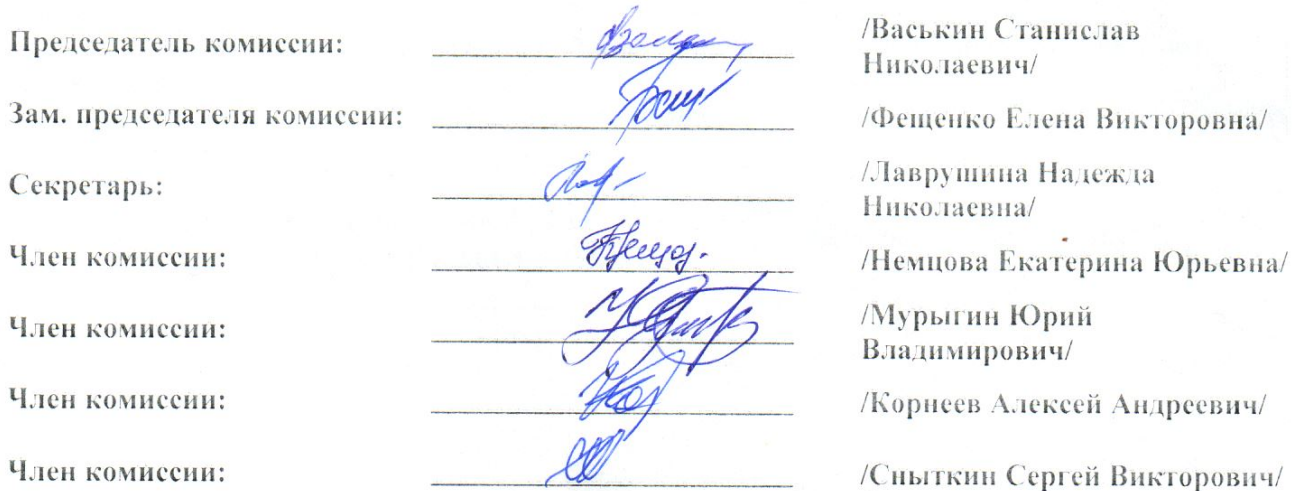 Председатель комиссии: /Васькин Станислав
Николаевич/
Зам. председателя комиссии: /Фещенко Елена Викторовна/
Секретарь: /Лаврушина Надежда
Николаевна/
Член комиссии: /Немцова Екатерина Юрьевна/
Член комиссии: /Мурыгин Юрий
Владимирович/
Член комиссии: /Корнеев Алексей Андреевич/
Член комиссии: /Сныткин Сергей Викторович/